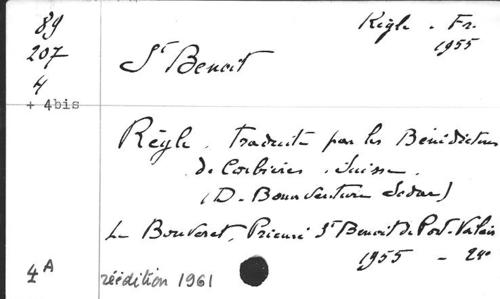 89
207
4
+ 4bis
Règle . Fr.
1955
St Benoit
Règle . traduite par les Bénédictins
de Corbières . Suisse .
(D. Bonaventure Sodar)
Le Bouveret, Prieuré St Benoit de Port-Valais
1955 - 24o
4A
réédition 1961